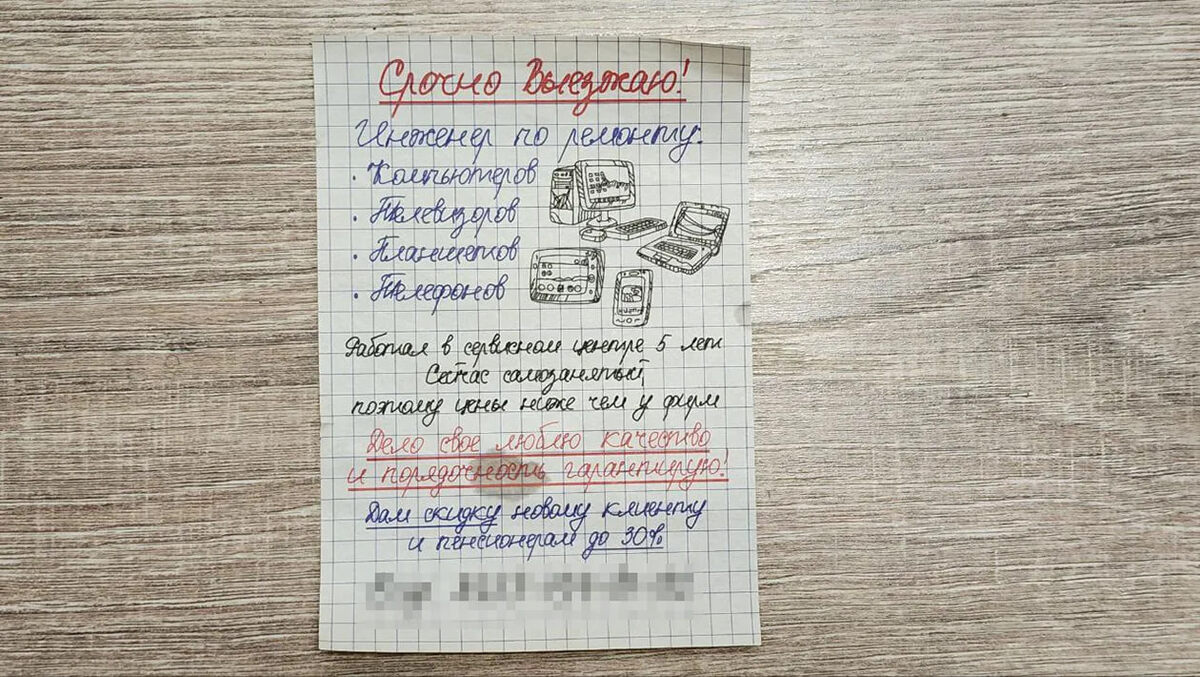 Срочно Выезжаю!
Инженер по ремонту:
• Компьютеров
• Телевизоров
• Планшетов
• Телефонов
Работал в сервисном центре 5 лет
Сейчас самозанятый,
поэтому цены ниже чем у фирм
Дело свое люблю качество
и порядочность гарантирую!
Дам скидку новому клиенту
и пенсионерам до 30%